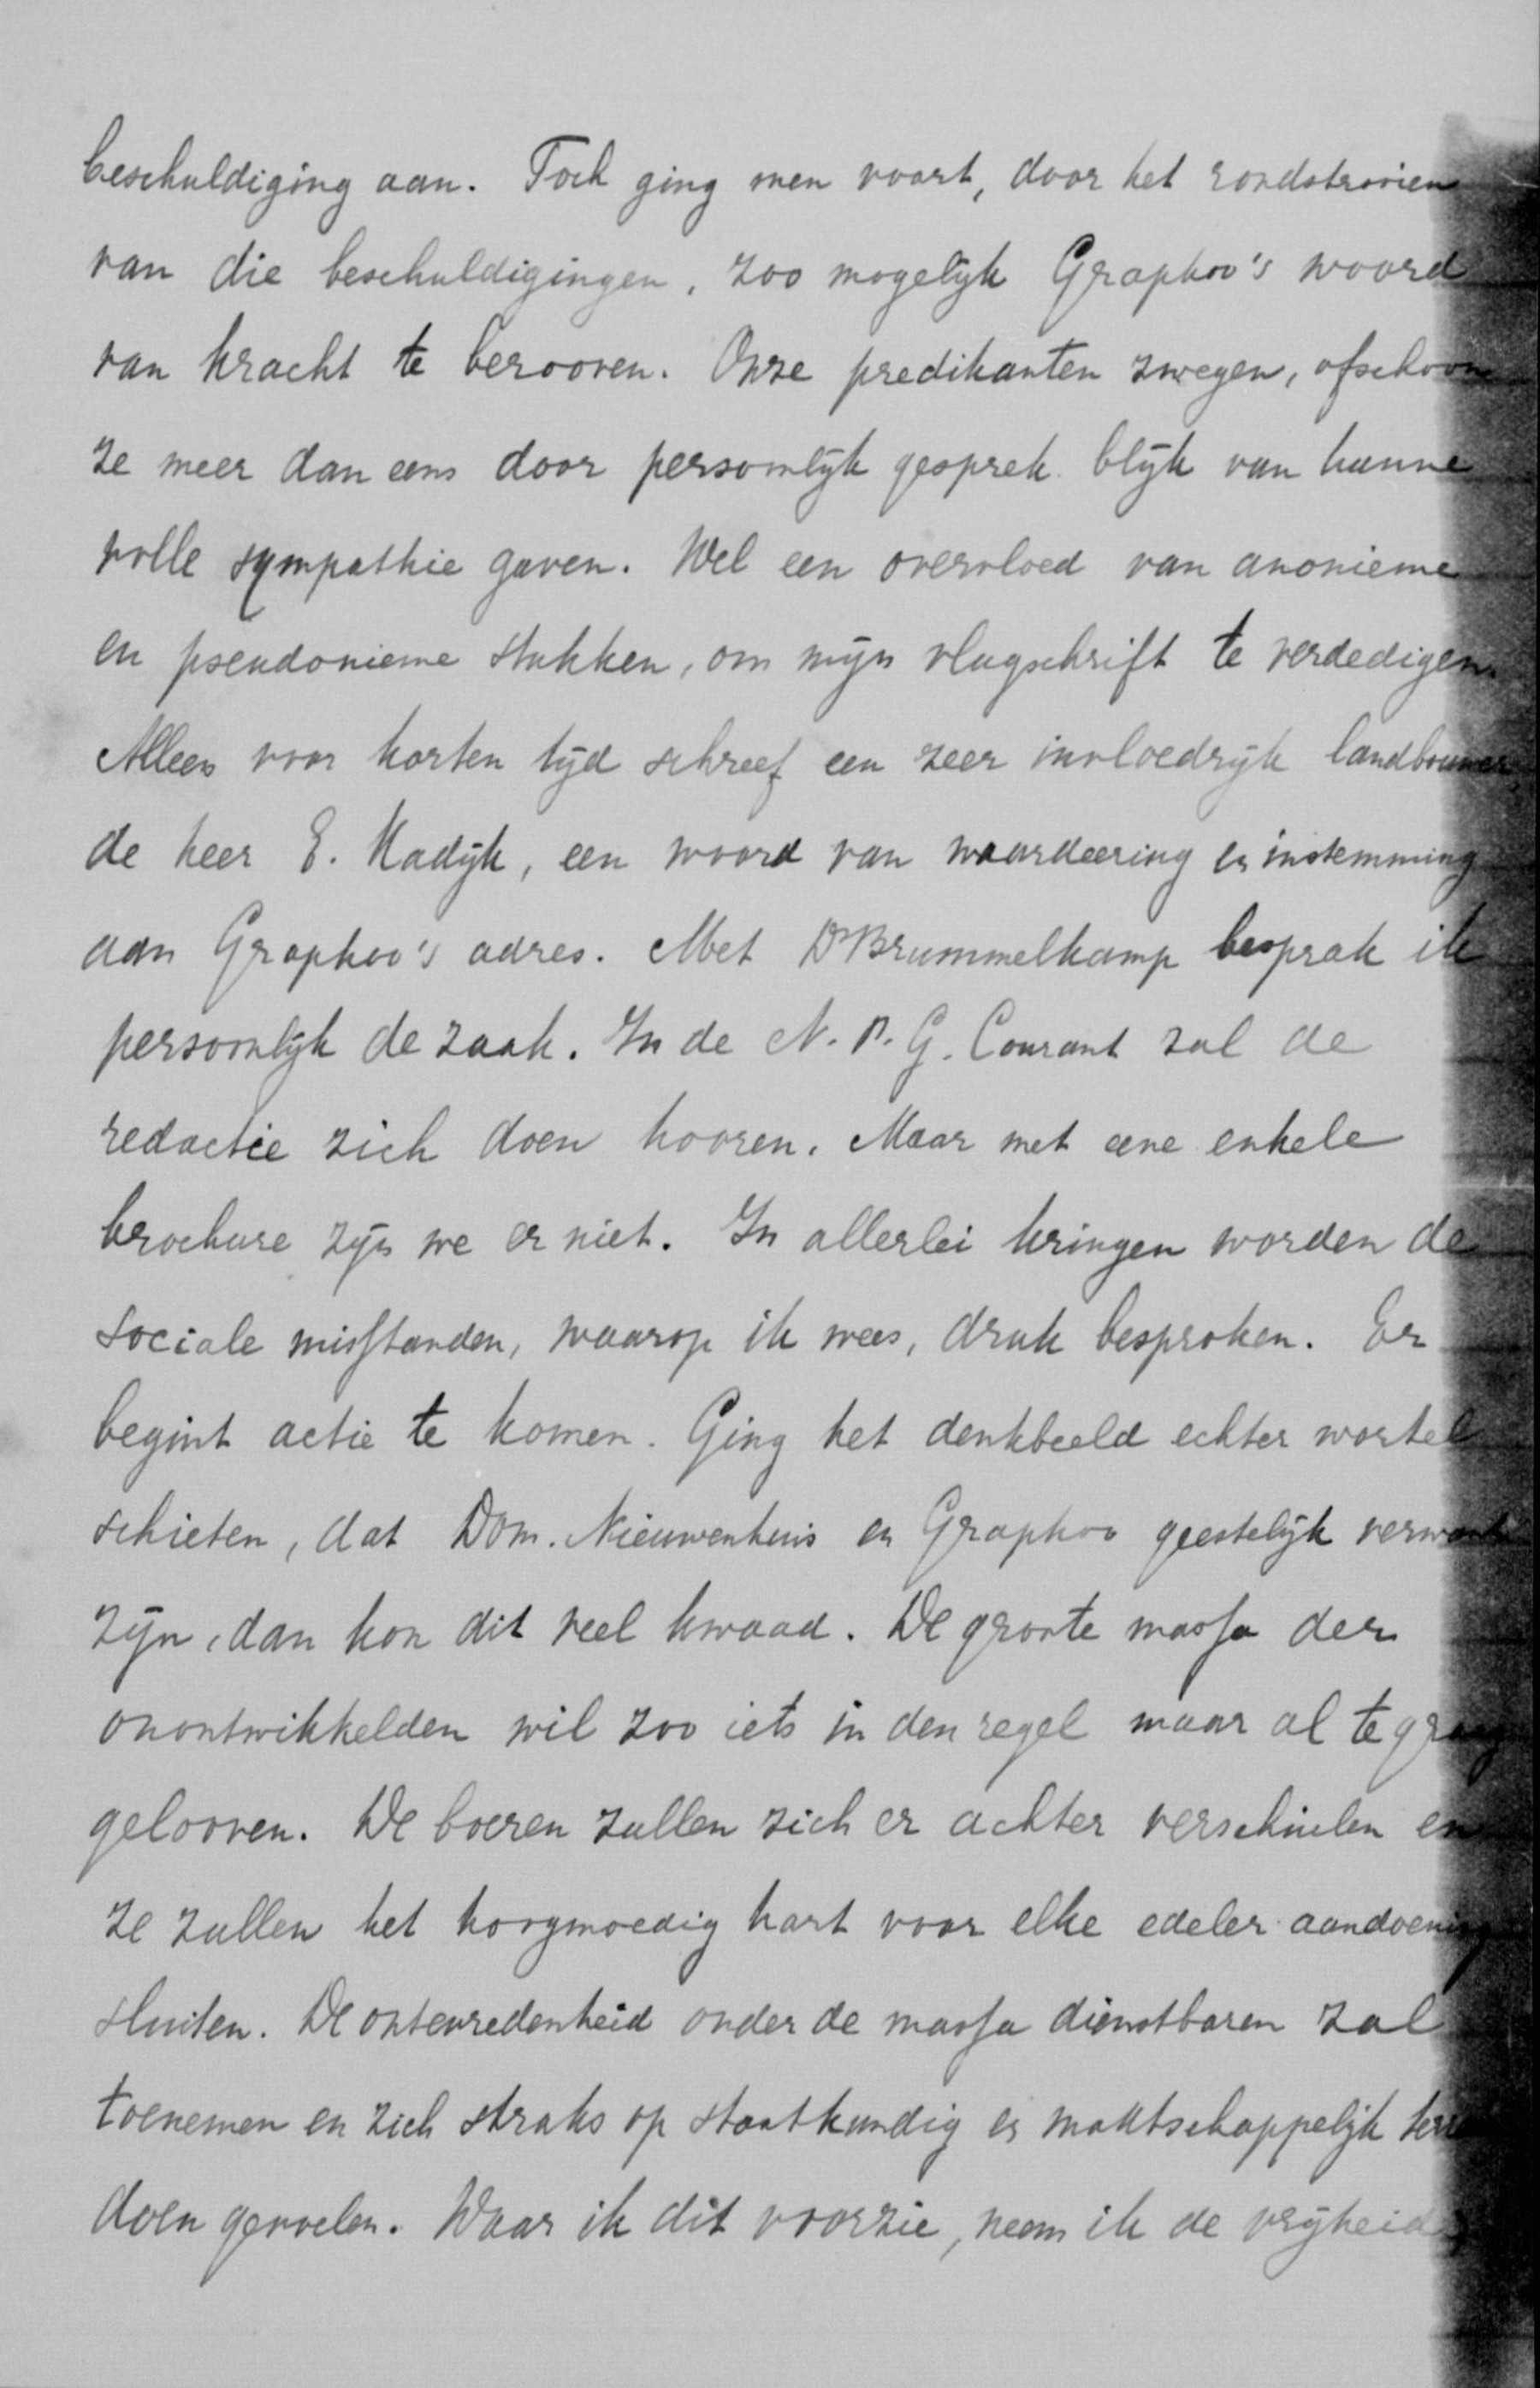 beschuldiging aan. Toch ging men voort, door het rondstrooien
van die beschuldigingen, zoo mogelijk Graphoo's woord
van kracht te berooven. Onze predikanten zwegen, ofschoon
ze meer dan eens door persoonlijk gesprek blijk van hunne
volle sympathie gaven. Wel een overvloed van anonieme
en pseudonieme stukken, om mijn vlugschrift te verdedigen.
Alleen voor korten tijd schreef een zeer invloedrijk landbouwer,
de heer E. Kadijk, een woord van waardeering en instemming
aan Graphoo's adres. Met Dr Brummelkamp besprak ik
persoonlijk de zaak. In de N. P. G. Courant zal de
redactie zich doen hooren. Maar met eene enkele
brochure zijn we er niet. In allerlei kringen worden de
sociale misstanden, waarop ik wees, druk besproken. Er
begint actie te komen. Ging het denkbeeld echter wortel
schieten, dat Dom. Nieuwenhuis en Graphoo geestelijk verwant
zijn, dan kon dit veel kwaad. De groote massa der
onontwikkelden wil zoo iets in den regel maar al te graag
gelooven. De boeren zullen zich er achter verschuilen en
ze zullen het hoogmoedig hart voor elke edeler aandoening
sluiten. De ontevredenheid onder de massa dienstbaren zal
toenemen en zich straks op staatkundig en maatschappelijk
doen gevoelen. Waar ik dit voorzie, neem ik de vrijheid,